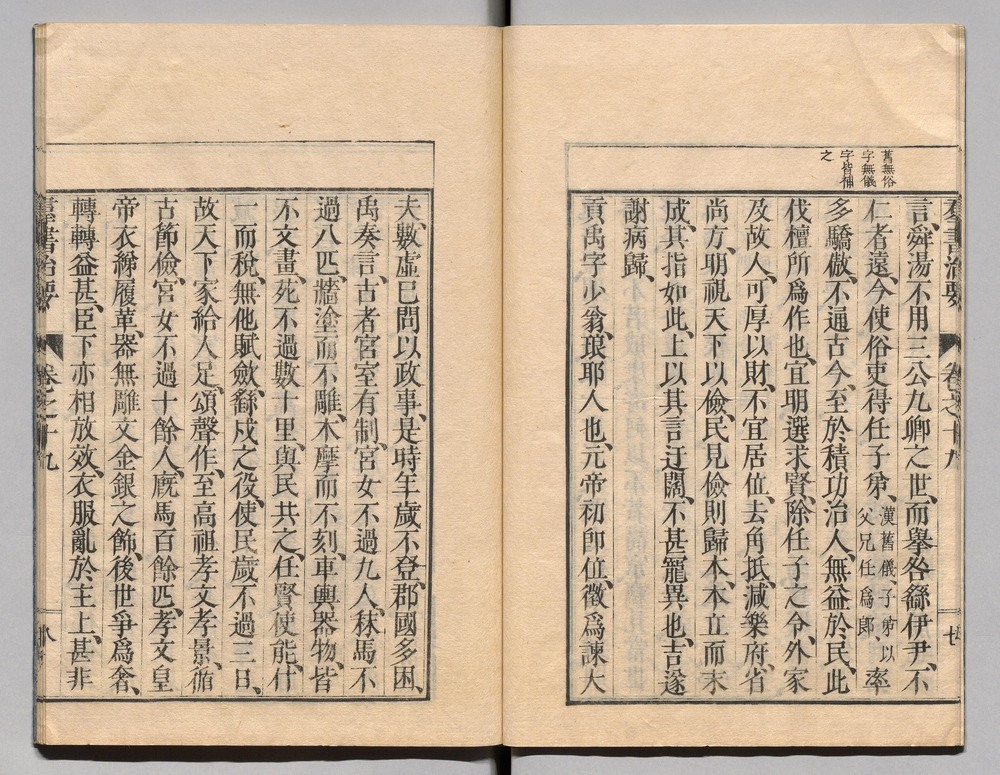 羣書治要 卷之十九 七
舊無俗
字無儀
字皆補
之
言、舜湯不用三公九卿之世、而舉咎繇伊尹、不
仁者遠、今使俗吏得任子弟、漢舊儀、子弟以父兄任爲郎、率
多驕傲、不通古今、至於積功治人、無益於民、此
伐檀所爲作也、宜明選求賢、除任子之令、外家
及故人、可厚以財、不宜居位、去角抵、減樂府、省
尚方、明視天下以儉、民見儉則歸本、本立而末
成、其指如此、上以其言迂闊、不甚寵異也、吉遂
謝病歸、
貢禹字少翁、琅耶人也、元帝初卽位、徵爲諫大
夫、數虛已問以政事、是時年歲不登、郡國多困、
禹奏言、古者宮室有制、宮女不過九人、秣馬不
過八匹、牆塗而不雕、木摩而不刻、車輿器物、皆
不文畫、死不過數十里、與民共之、任賢使能、什
一而稅、無他賦斂、繇戍之役、使民歲不過三日、
故天下家給人足、頌聲作、至高祖孝文孝景、循
古節儉、宮女不過十餘人、廐馬百餘匹、孝文皇
帝、衣綈履革、器無雕文金銀之飾、後世爭爲奢、
轉轉益甚、臣下亦相放效、衣服亂於主上、甚非
羣書治要 卷之十九 八